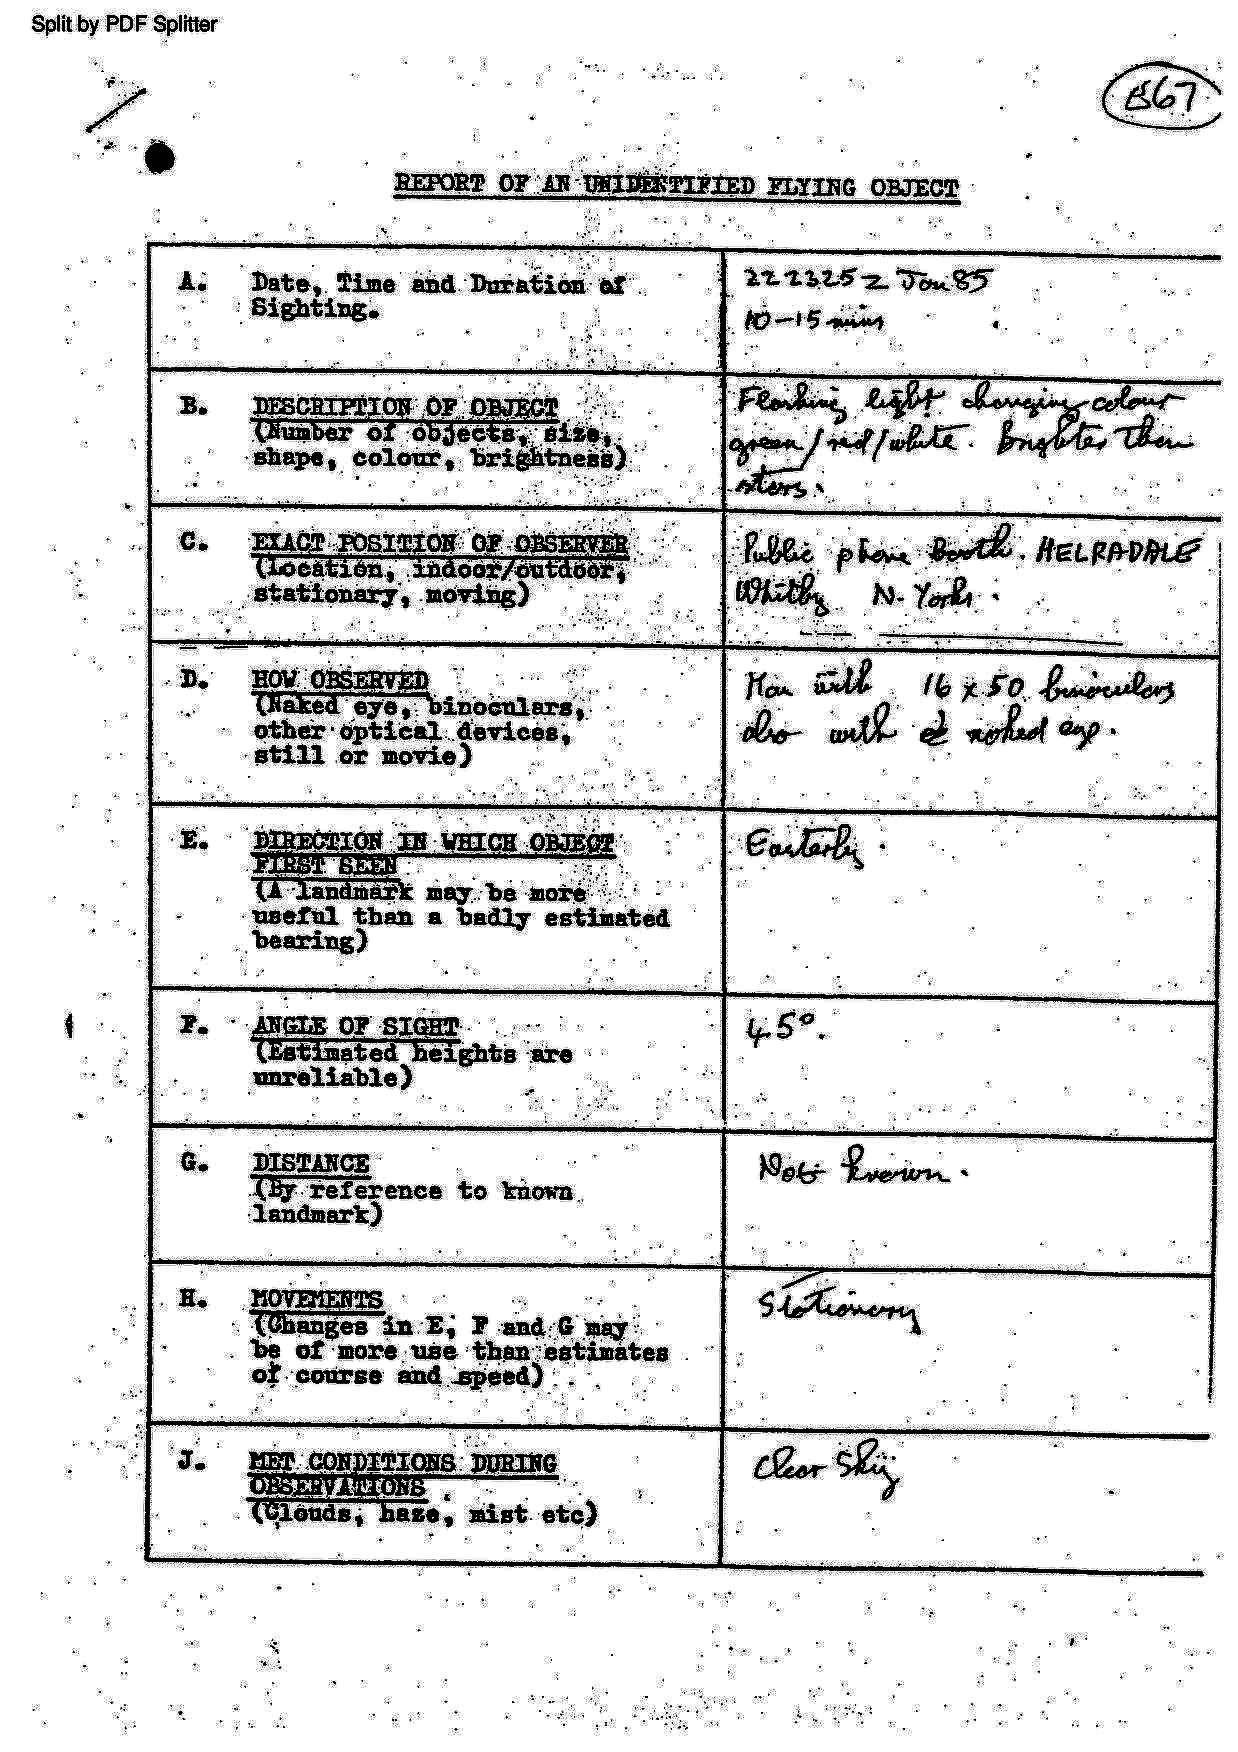 Split by PDF Splitter
E67
REPORT OF AN UNIDENTIFIED FLYING OBJECT
A. Date, Time and Duration of
Sighting.
222325Z Jan 85
10-15 mins
B. DESCRIPTION OF OBJECT
(Number of objects, size,
shape, colour, brightness)
Flashing light changing colour
green/red/white. Brighter than
stars.
C. EXACT POSITION OF OBSERVER
(Location, indoor/outdoor,
stationary, moving)
Public phone Booth. HELRADALE
Whitby N. Yorks.
D. HOW OBSERVED
(Naked eye, binoculars,
other optical devices,
still or movie)
Man with 16 x 50 binoculars
also with naked eye.
E. DIRECTION IN WHICH OBJECT
FIRST SEEN
(A landmark may be more
useful than a badly estimated
bearing)
Easterly.
F. ANGLE OF SIGHT
(Estimated heights are
unreliable)
45°.
G. DISTANCE
(By reference to known
landmark)
Not known.
H. MOVEMENTS
(Changes in E, F and G may
be of more use than estimates
of course and speed)
Stationary
J. MET CONDITIONS DURING
OBSERVATIONS
(Clouds, haze, mist etc)
Clear Sky